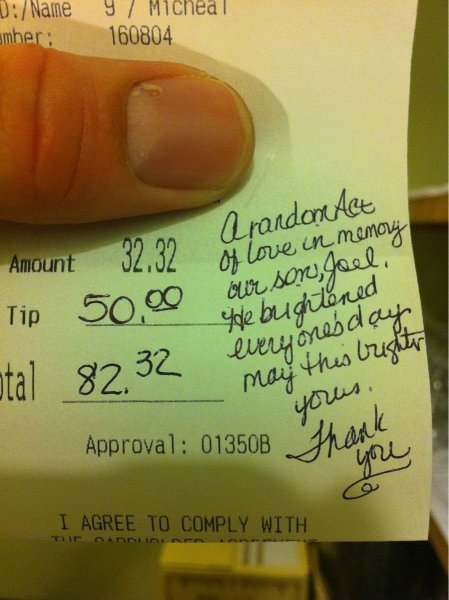 D:/Name 9 / Micheal
mber: 160804
A random Act
of love in memory
our son, Joel.
He brightened
everyone's day
may this brighten
yours.
Thank
you
Amount 32.32
Tip 50.00
otal 82.32
Approval: 01350B
I AGREE TO COMPLY WITH
THE CARDHOLDER AGREEMENT